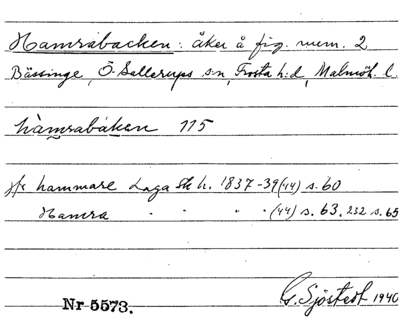 Hamrabacken: åker å fig. num. 2
Bässinge, Ö. Sallerups sn, Frosta h:d, Malmöh. l.
hàmrabáken 115
jfr hammare Laga Sk h. 1837-39 (44) s. 60
Hamra " " " (44) s. 63, 232 s. 65
G. Sjöstedt 1940
Nr 5573.